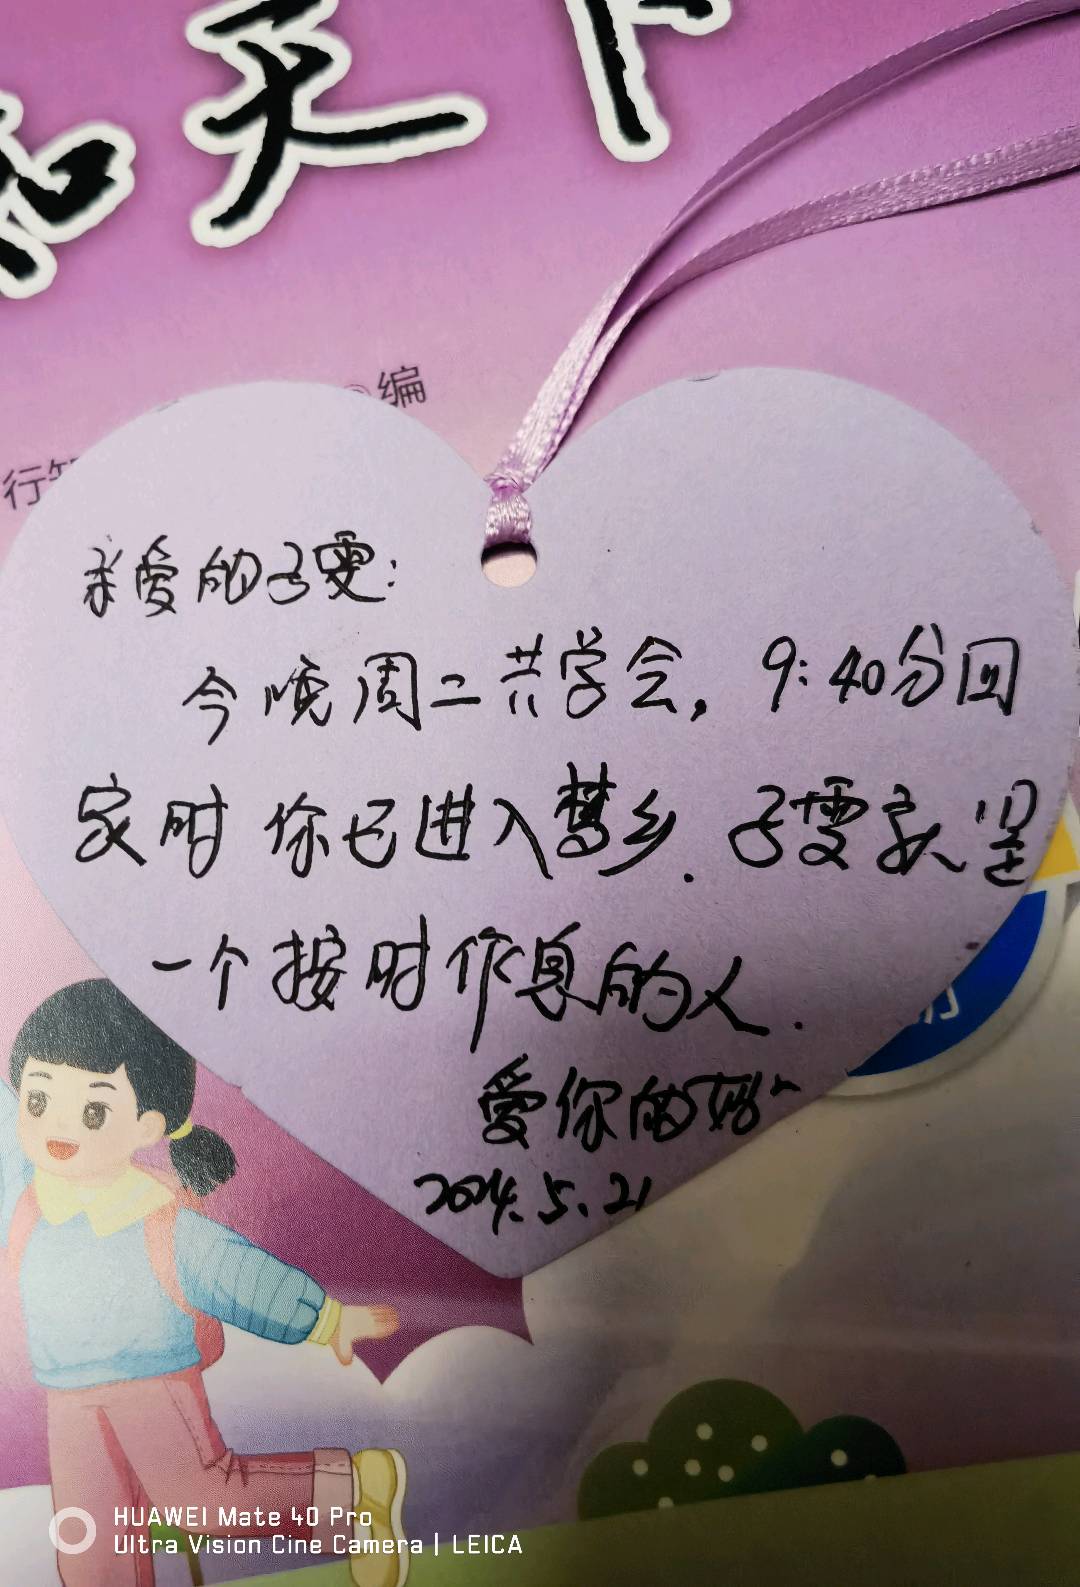 天
编
行
亲爱的子雯：
今晚周二共学会，9:40分回
家时你已进入梦乡.子雯家是
一个按时作息的人.
爱你的妈~
2024.5.21
HUAWEI Mate 40 Pro
Ultra Vision Cine Camera | LEICA